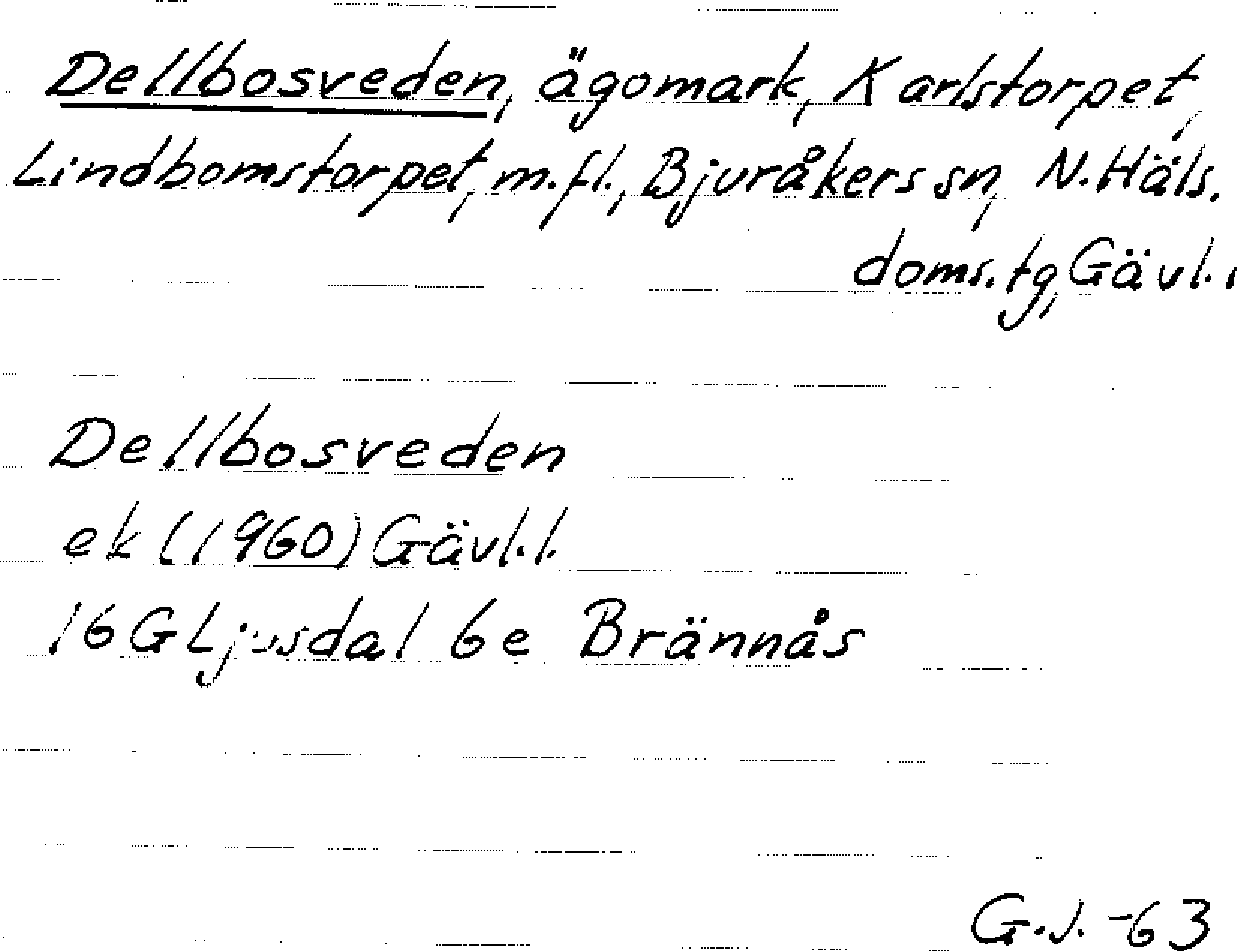 Dellbosveden, ägomark, Karlstorpet,
Lindbomstorpet, m.fl., Bjuråkers sn, N. Häls.
doms.tg, Gävl.l
Dellbosveden
ek (1960) Gävl.l.
16G Ljusdal 6e Brännås
G.J. -63